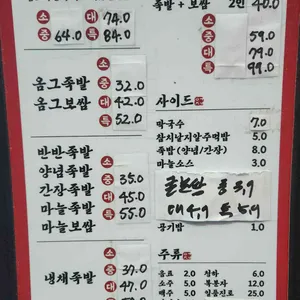 족발 + 보쌈 2인 40.0
소 대 74.0
중 64.0 특 84.0
59.0
대 79.0
특 99.0
옴그족발 중 32.0
옴그보쌈 대 42.0
특 52.0
사이드
막국수 7.0
참치날치알주먹밥 5.0
족발(양념/간장) 8.0
마늘소스 3.0
공기밥 1.0
반반족발 소
양념족발 중 35.0
간장족발 대 45.0
마늘족발 특 55.0
마늘보쌈
주류
음료 2.0 청하 6.0
소주 5.0 복분자 12.0
맥주 5.0 일품진로 25.0
소
냉채족발 중 37.0
대 47.0